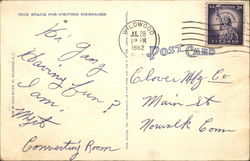 THIS SPACE FOR WRITING MESSAGES
Hi Gang
Having Fun?
I am!
Myrt
Converting Room
WILDWOOD
JUL 28
PM
1962
POST CARD
Glover Mfg Co
Main St
Norwalk Conn